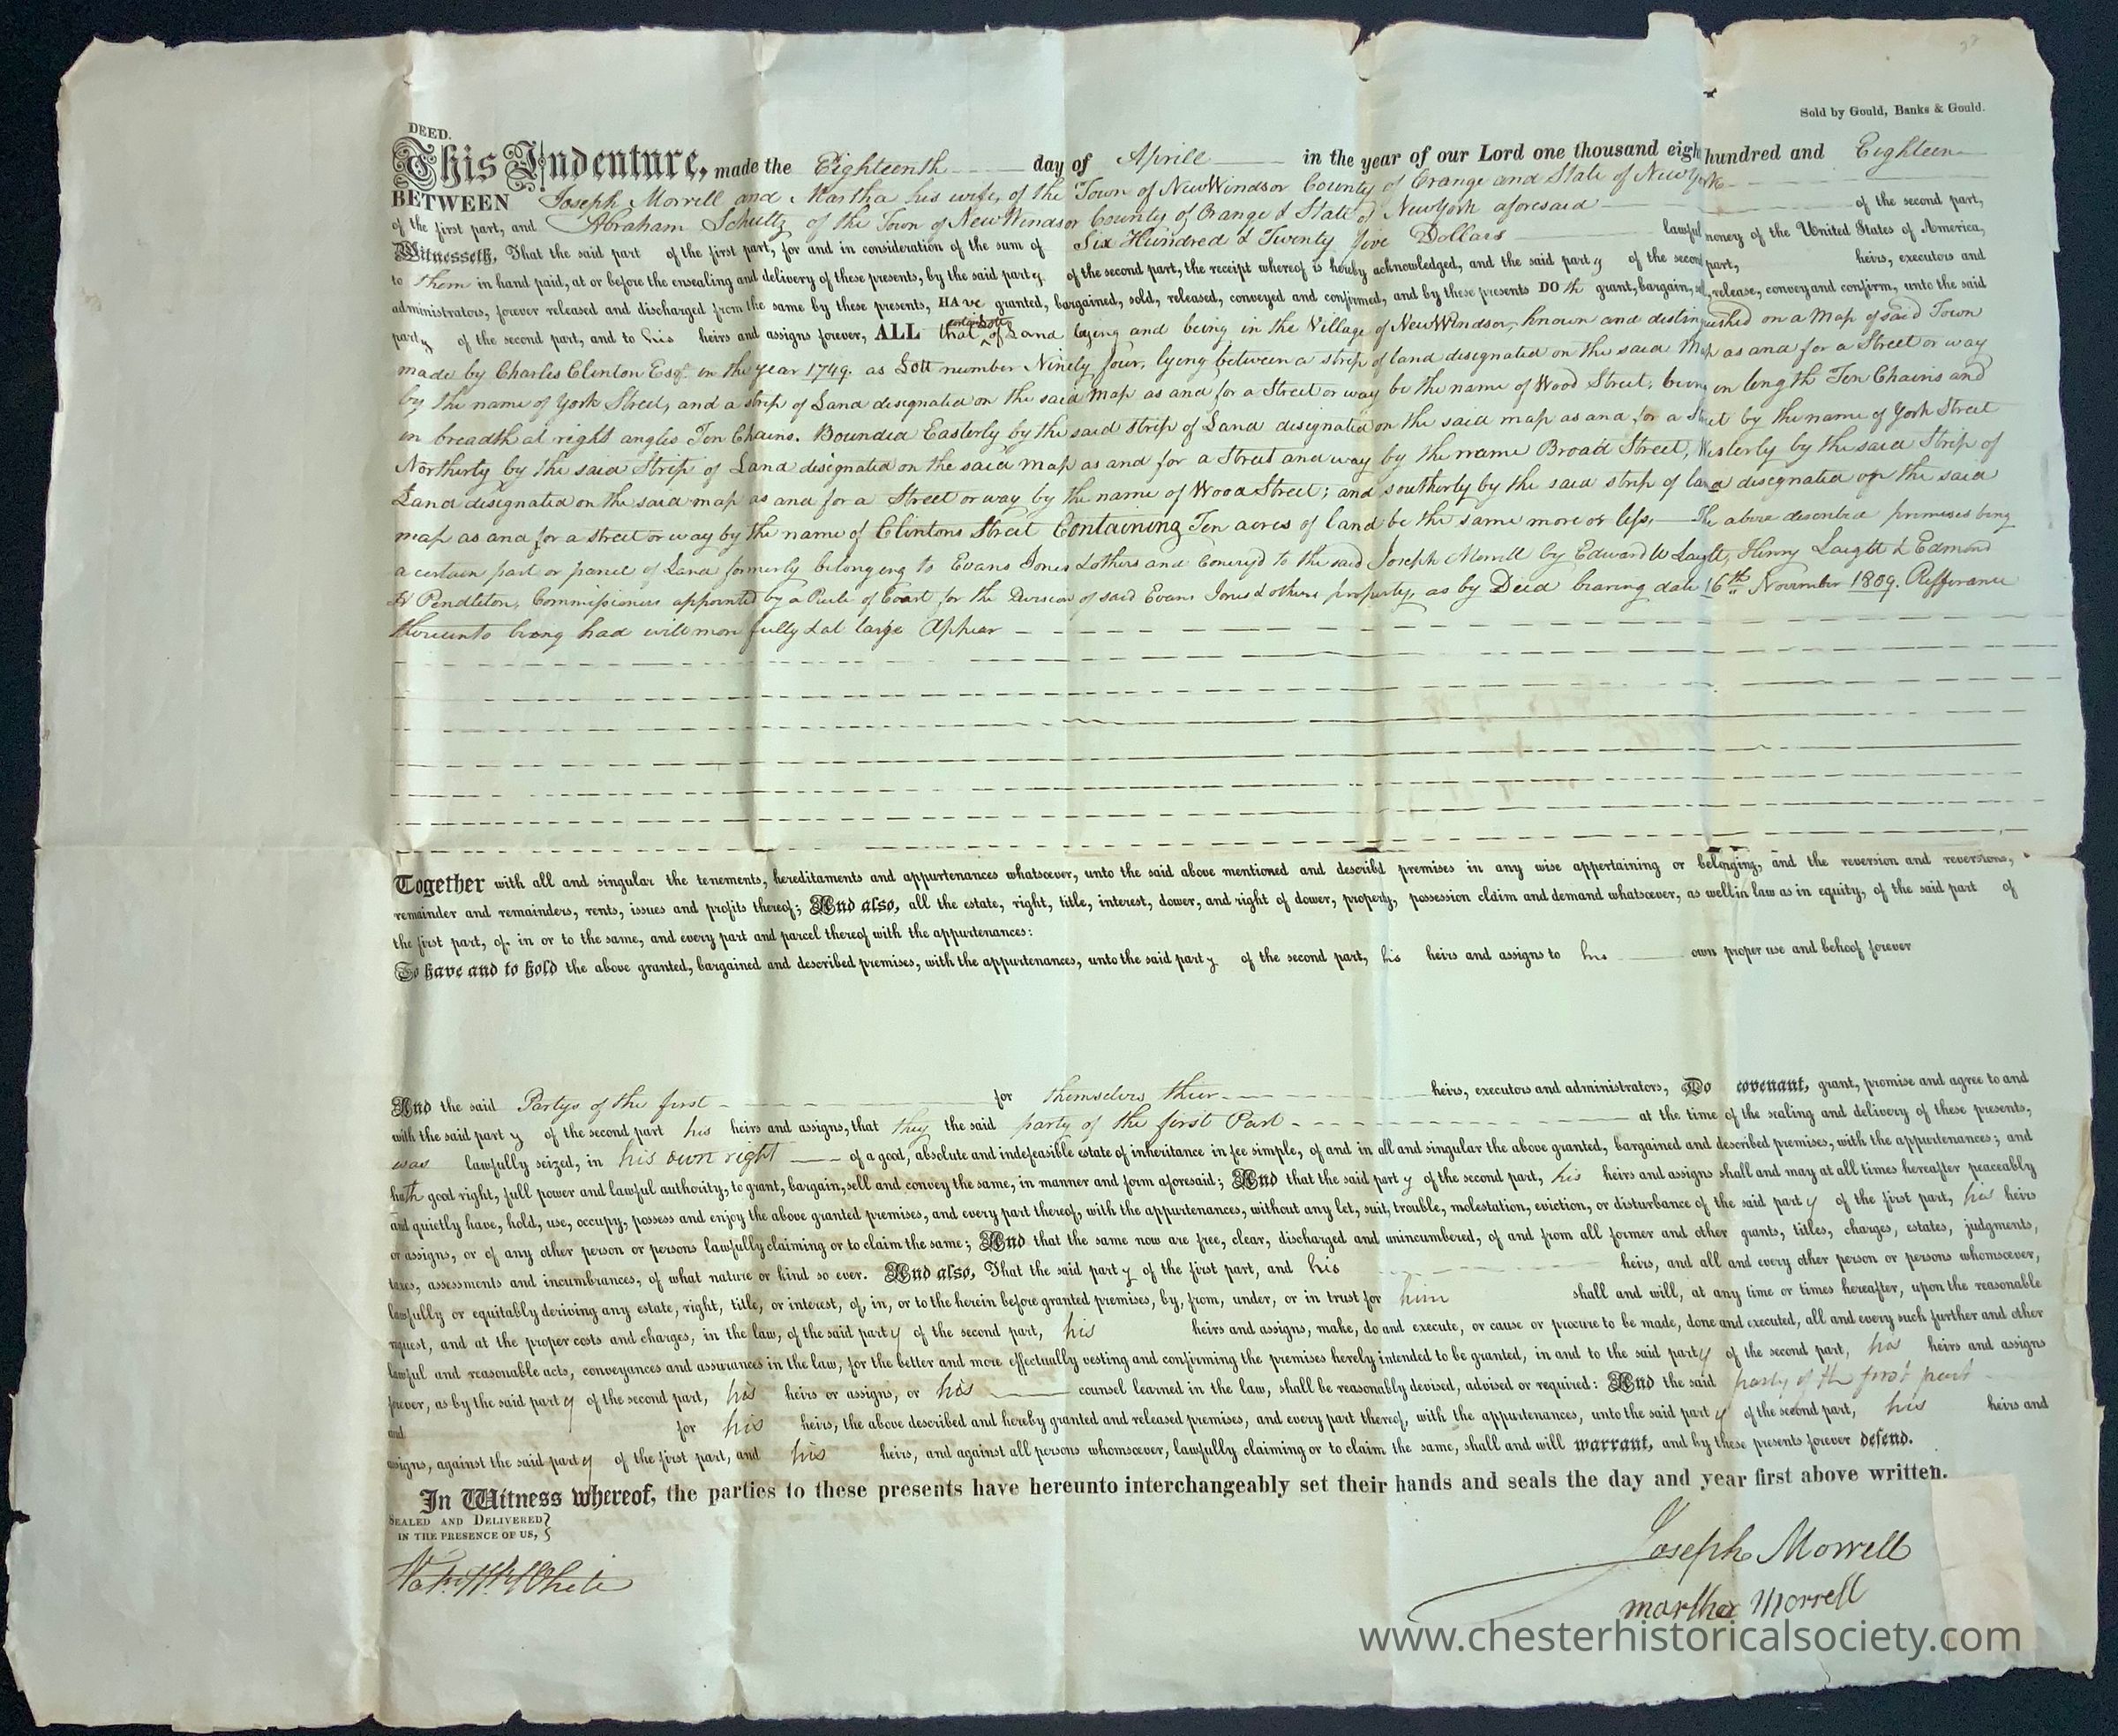 Sold by Gould, Banks & Gould.
DEED.
This Indenture, made the Eighteenth day of Aprill in the year of our Lord one thousand eigh hundred and Eighteen
BETWEEN Joseph Morrell and Martha his wife, of the Town of New Windsor County of Orange and State of New York
of the first part, and Abraham Schultz of the Town of New Windsor County of Orange & State of New York aforesaid of the second part,
Witnesseth, That the said part of the first part, for and in consideration of the sum of Six Hundred & Twenty five Dollars lawful money of the United States of America,
to them in hand paid, at or before the ensealing and delivery of these presents, by the said party of the second part, the receipt whereof is hereby acknowledged, and the said party of the second part, heirs, executors and
administrators, forever released and discharged from the same by these presents, HAVe granted, bargained, sold, released, conveyed and confirmed, and by these presents DO th grant, bargain, sell, release, convey and confirm, unto the said
party of the second part, and to his heirs and assigns forever, ALL that certain Lott of Land lying and being in the Village of New Windsor, known and distinguished on a Map of said Town
made by Charles Clinton Esqr. in the year 1749. as Lott number Ninety four, lying between a strip of land designated on the said Map as and for a Street or way
by the name of York Street, and a strip of Land designated on the said Map as and for a Street or way be the name of Wood Street, being in length Ten Chains and
in breadth at right angles Ten Chains. Bounded Easterly by the said strip of Land designated on the said map as and for a Street by the name of York Street
Northerly by the said Strip of Land designated on the said map as and for a Street and way by the name Broad Street, Westerly by the said Strip of
Land designated on the said map as and for a Street or way by the name of Wood Street; and southerly by the said strip of land designated on the said
map as and for a street or way by the name of Clintons Street Containing Ten acres of land be the same more or less, The above described premises being
a certain part or parcel of Land formerly belonging to Evans Jones & others and Conveyd to the said Joseph Morrell by Edward W Laight, Henry Laight & Edmond
H Pendleton, Commissioners appointed by a Rule of Court for the Division of said Evans Jones & others property, as by Deed bearing date 16th November 1809. Refferance
thereunto being had will more fully & at large Appear
Together with all and singular the tenements, hereditaments and appurtenances whatsoever, unto the said above mentioned and describ'd premises in any wise appertaining or belonging, and the reversion and reversions,
remainder and remainders, rents, issues and profits thereof; And also, all the estate, right, title, interest, dower, and right of dower, property, possession claim and demand whatsoever, as well in law as in equity, of the said part of
the first part, of, in or to the same, and every part and parcel thereof with the appurtenances:
To have and to hold the above granted, bargained and described premises, with the appurtenances, unto the said party of the second part, his heirs and assigns to his own proper use and behoof forever
And the said Partys of the first for themselves their heirs, executors and administrators, Do covenant, grant, promise and agree to and
with the said party of the second part his heirs and assigns, that they the said party of the first Part at the time of the sealing and delivery of these presents,
was lawfully seized, in his own right of a good, absolute and indefeasible estate of inheritance in fee simple, of and in all and singular the above granted, bargained and described premises, with the appurtenances; and
hath good right, full power and lawful authority, to grant, bargain, sell and convey the same, in manner and form aforesaid; And that the said party of the second part, his heirs and assigns shall and may at all times hereafter peaceably
and quietly have, hold, use, occupy, possess and enjoy the above granted premises, and every part thereof, with the appurtenances, without any let, suit, trouble, molestation, eviction, or disturbance of the said party of the first part, his heirs
or assigns, or of any other person or persons lawfully claiming or to claim the same; And that the same now are free, clear, discharged and unincumbered, of and from all former and other grants, titles, charges, estates, judgments,
taxes, assessments and incumbrances, of what nature or kind so ever. And also, That the said party of the first part, and his heirs, and all and every other person or persons whomsoever,
lawfully or equitably deriving any estate, right, title, or interest, of, in, or to the herein before granted premises, by, from, under, or in trust for him shall and will, at any time or times hereafter, upon the reasonable
request, and at the proper costs and charges, in the law, of the said party of the second part, his heirs and assigns, make, do and execute, or cause or procure to be made, done and executed, all and every such further and other
lawful and reasonable acts, conveyances and assurances in the law, for the better and more effectually vesting and confirming the premises hereby intended to be granted, in and to the said party of the second part, his heirs and assigns
forever, as by the said party of the second part, his heirs or assigns, or his counsel learned in the law, shall be reasonably devised, advised or required: And the said party of the first part
and for his heirs, the above described and hereby granted and released premises, and every part thereof, with the appurtenances, unto the said party of the second part, his heirs and
assigns, against the said party of the first part, and his heirs, and against all persons whomsoever, lawfully claiming or to claim the same, shall and will warrant, and by these presents forever defend.
In Witness whereof, the parties to these presents have hereunto interchangeably set their hands and seals the day and year first above written.
SEALED AND DELIVERED
IN THE PRESENCE OF US,
White
Joseph Morrell
martha Morrell
www.chesterhistoricalsociety.com